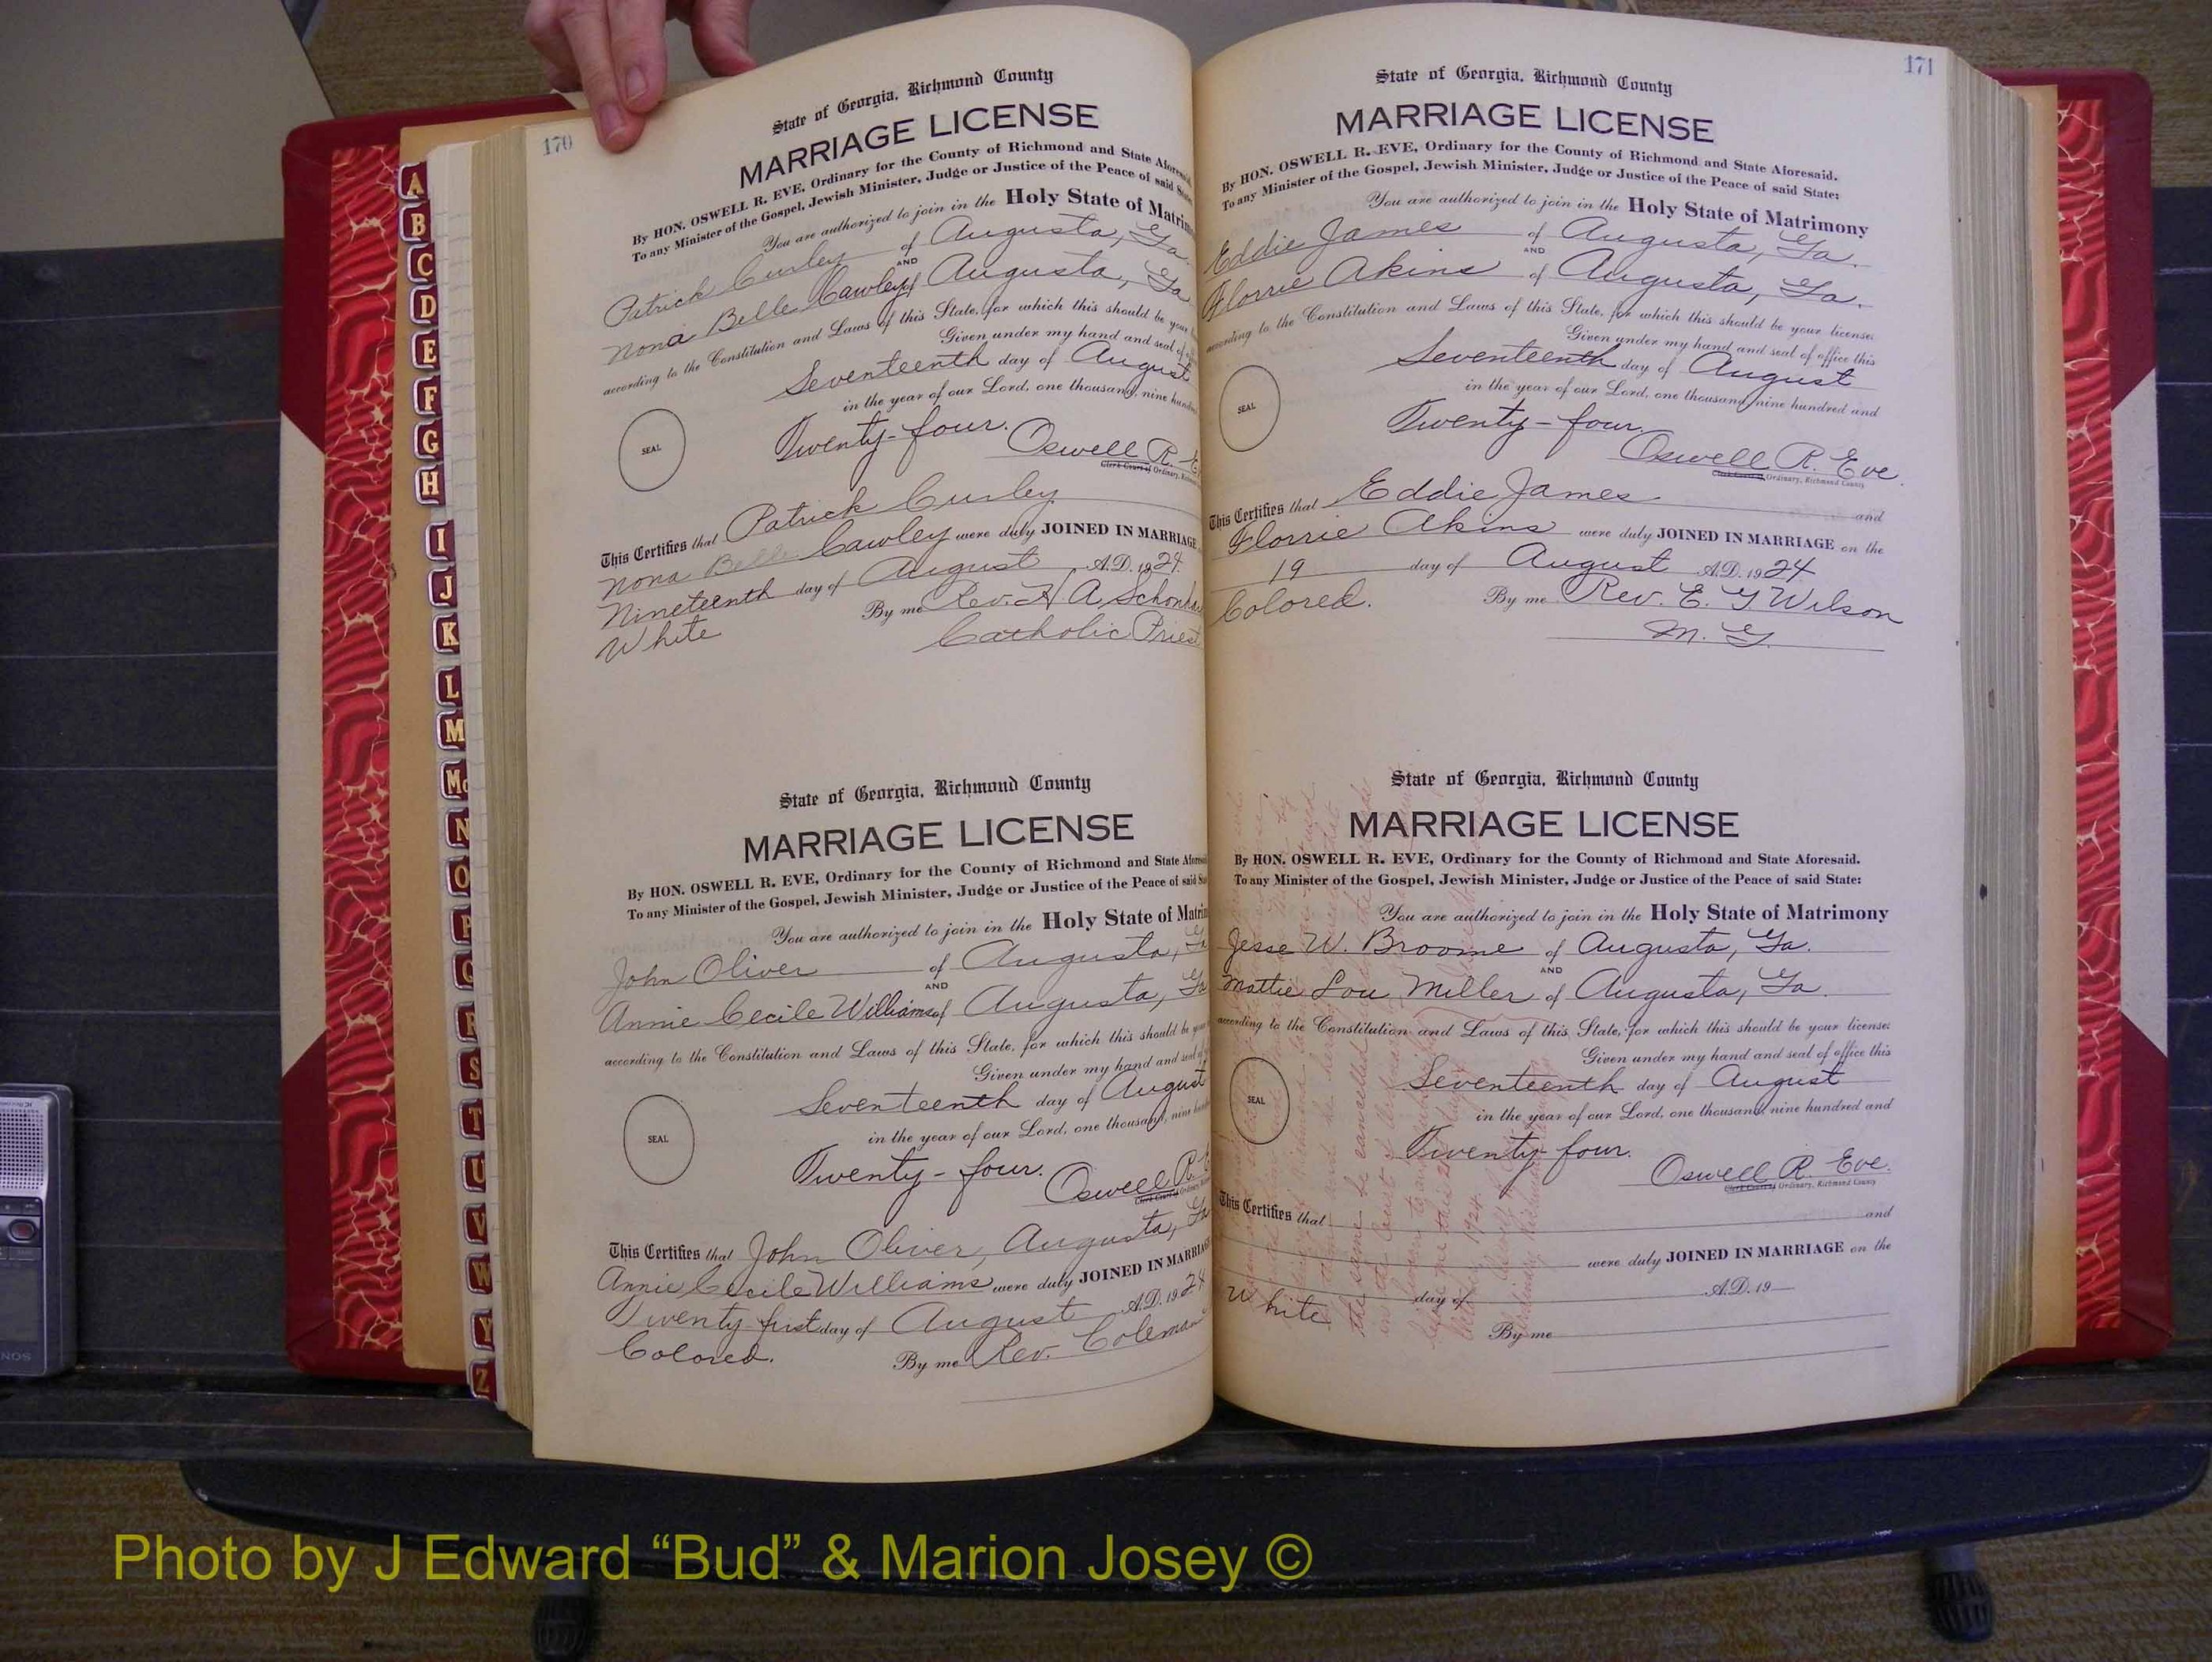 170
State of Georgia, Richmond County
MARRIAGE LICENSE
By HON. OSWELL R. EVE, Ordinary for the County of Richmond and State Aforesaid.
To any Minister of the Gospel, Jewish Minister, Judge or Justice of the Peace of said State
You are authorized to join in the Holy State of Matrim
Patrick Curley of Augusta, Ga.
AND
Nona Belle Cawley of Augusta, Ga
according to the Constitution and Laws of this State, for which this should be your
Given under my hand and seal of
Seventeenth day of August
in the year of our Lord, one thousand, nine hund
Twenty-four.
SEAL
Oswell R. E
Clerk Court of Ordinary,
This Certifies that Patrick Curley
Nona Belle Cawley were duly JOINED IN MARRIAGE
Nineteenth day of August A.D. 1924.
By me Rev. H A
White Catholic Priest
State of Georgia, Richmond County
MARRIAGE LICENSE
By HON. OSWELL R. EVE, Ordinary for the County of Richmond and State Aforesai
To any Minister of the Gospel, Jewish Minister, Judge or Justice of the Peace of said Sta
You are authorized to join in the Holy State of Matrim
John Oliver of Augusta, G
AND
Annie Cecile Williams of Augusta, Ga
according to the Constitution and Laws of this State, for which this should be your
Given under my hand and seal of
Seventeenth day of August
in the year of our Lord, one thousand, nine hund
Twenty-four.
SEAL
Oswell R.
Clerk Court of Ordinary,
This Certifies that John Oliver, Augusta, Ga
Annie Cecile Williams were duly JOINED IN MARRIAG
Twenty first day of August A.D. 1924
Colored. By me Rev. Coleman
171
State of Georgia, Richmond County
MARRIAGE LICENSE
By HON. OSWELL R. EVE, Ordinary for the County of Richmond and State Aforesaid.
To any Minister of the Gospel, Jewish Minister, Judge or Justice of the Peace of said State:
You are authorized to join in the Holy State of Matrimony
Eddie James of Augusta, Ga.
AND
Florrie Akins of Augusta, Ga.
according to the Constitution and Laws of this State, for which this should be your license:
Given under my hand and seal of office this
Seventeenth day of August
in the year of our Lord, one thousand, nine hundred and
Twenty-four
SEAL
Oswell R. Eve.
Clerk Court of Ordinary, Richmond County
This Certifies that Eddie James and
Florrie Akins were duly JOINED IN MARRIAGE on the
19 day of August A.D. 1924.
Colored. By me Rev. E. G. Wilson
M. G.
State of Georgia, Richmond County
MARRIAGE LICENSE
By HON. OSWELL R. EVE, Ordinary for the County of Richmond and State Aforesaid.
To any Minister of the Gospel, Jewish Minister, Judge or Justice of the Peace of said State:
You are authorized to join in the Holy State of Matrimony
Jesse W. Broome of Augusta, Ga.
AND
Mattie Lou Miller of Augusta, Ga.
according to the Constitution and Laws of this State, for which this should be your license:
Given under my hand and seal of office this
Seventeenth day of August
in the year of our Lord, one thousand, nine hundred and
Twenty-four.
SEAL
Oswell R. Eve.
Clerk Court of Ordinary, Richmond County
This Certifies that and
were duly JOINED IN MARRIAGE on the
day of A.D. 19
White By me
A
B
C
D
E
F
G
H
I
J
K
L
M
Mc
N
O
P
Q
R
S
T
U
V
W
Y
Z
Photo by J Edward “Bud” & Marion Josey ©